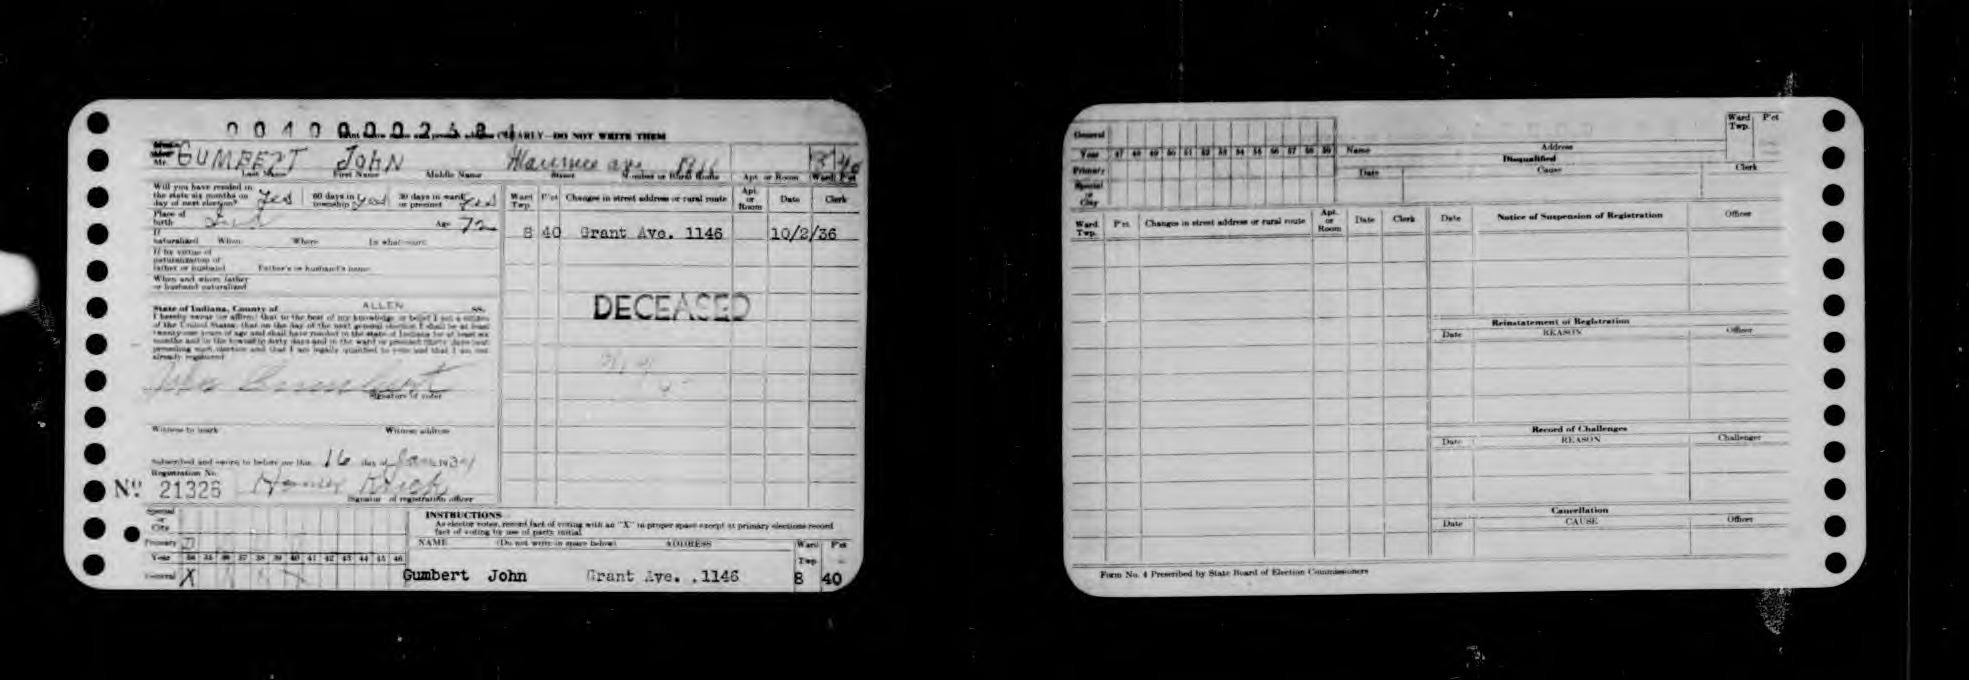 EARLY—DO NOT WRITE THEM
Mr. GUMBERT JOHN Maumee ave
Last Name First Name Middle Name Street Number or Rural Route Apt. or Room Ward P'ct
Will you have resided in
the state six months on
day of next election? Yes 60 days in township? Yes 30 days in ward or precinct Yes
Place of
birth Ind Age 72
If
naturalized When Where In what court
If by virtue of
naturalization of
father or husband Father's or husband's name
When and where father
or husband naturalized
State of Indiana, County of ALLEN SS.
I hereby swear (or affirm) that to the best of my knowledge or belief I am a citizen
of the United States; that on the day of the next general election I shall be at least
twenty-one years of age and shall have resided in the state of Indiana for at least six
months and in the township sixty days and in the ward or precinct thirty days next
preceding such election and that I am legally qualified to vote and that I am not
already registered
John Gumbert
Signature of voter
Witness to mark Witness address
Subscribed and sworn to before me this 16 day of Jan 1934
Registration No.
No. 21326 Homer Krick
Signature of registration officer
Ward Twp. P'ct Changes in street address or rural route Apt. or Room Date Clerk
8 40 Grant Ave. 1146 10/2/36
DECEASED
Special
or
City
Primary D
Year 34 35 36 37 38 39 40 41 42 43 44 45 46
General X
INSTRUCTIONS
As elector votes, record fact of voting with an "X" in proper space except at primary elections record
fact of voting by use of party initial
NAME (Do not write in space below) ADDRESS Ward Twp. P'ct
Gumbert John Grant Ave. .1146 8 40
General
Year 47 48 49 50 51 52 53 54 55 56 57 58 59
Primary
Special
or
City
Name Address Ward Twp. P'ct
Disqualified
Date Cause Clerk
Ward Twp. P'ct Changes in street address or rural route Apt. or Room Date Clerk
Date Notice of Suspension of Registration Officer
Reinstatement of Registration
Date REASON Officer
Record of Challenges
Date REASON Challenger
Cancellation
Date CAUSE Officer
Form No. 4 Prescribed by State Board of Election Commissioners